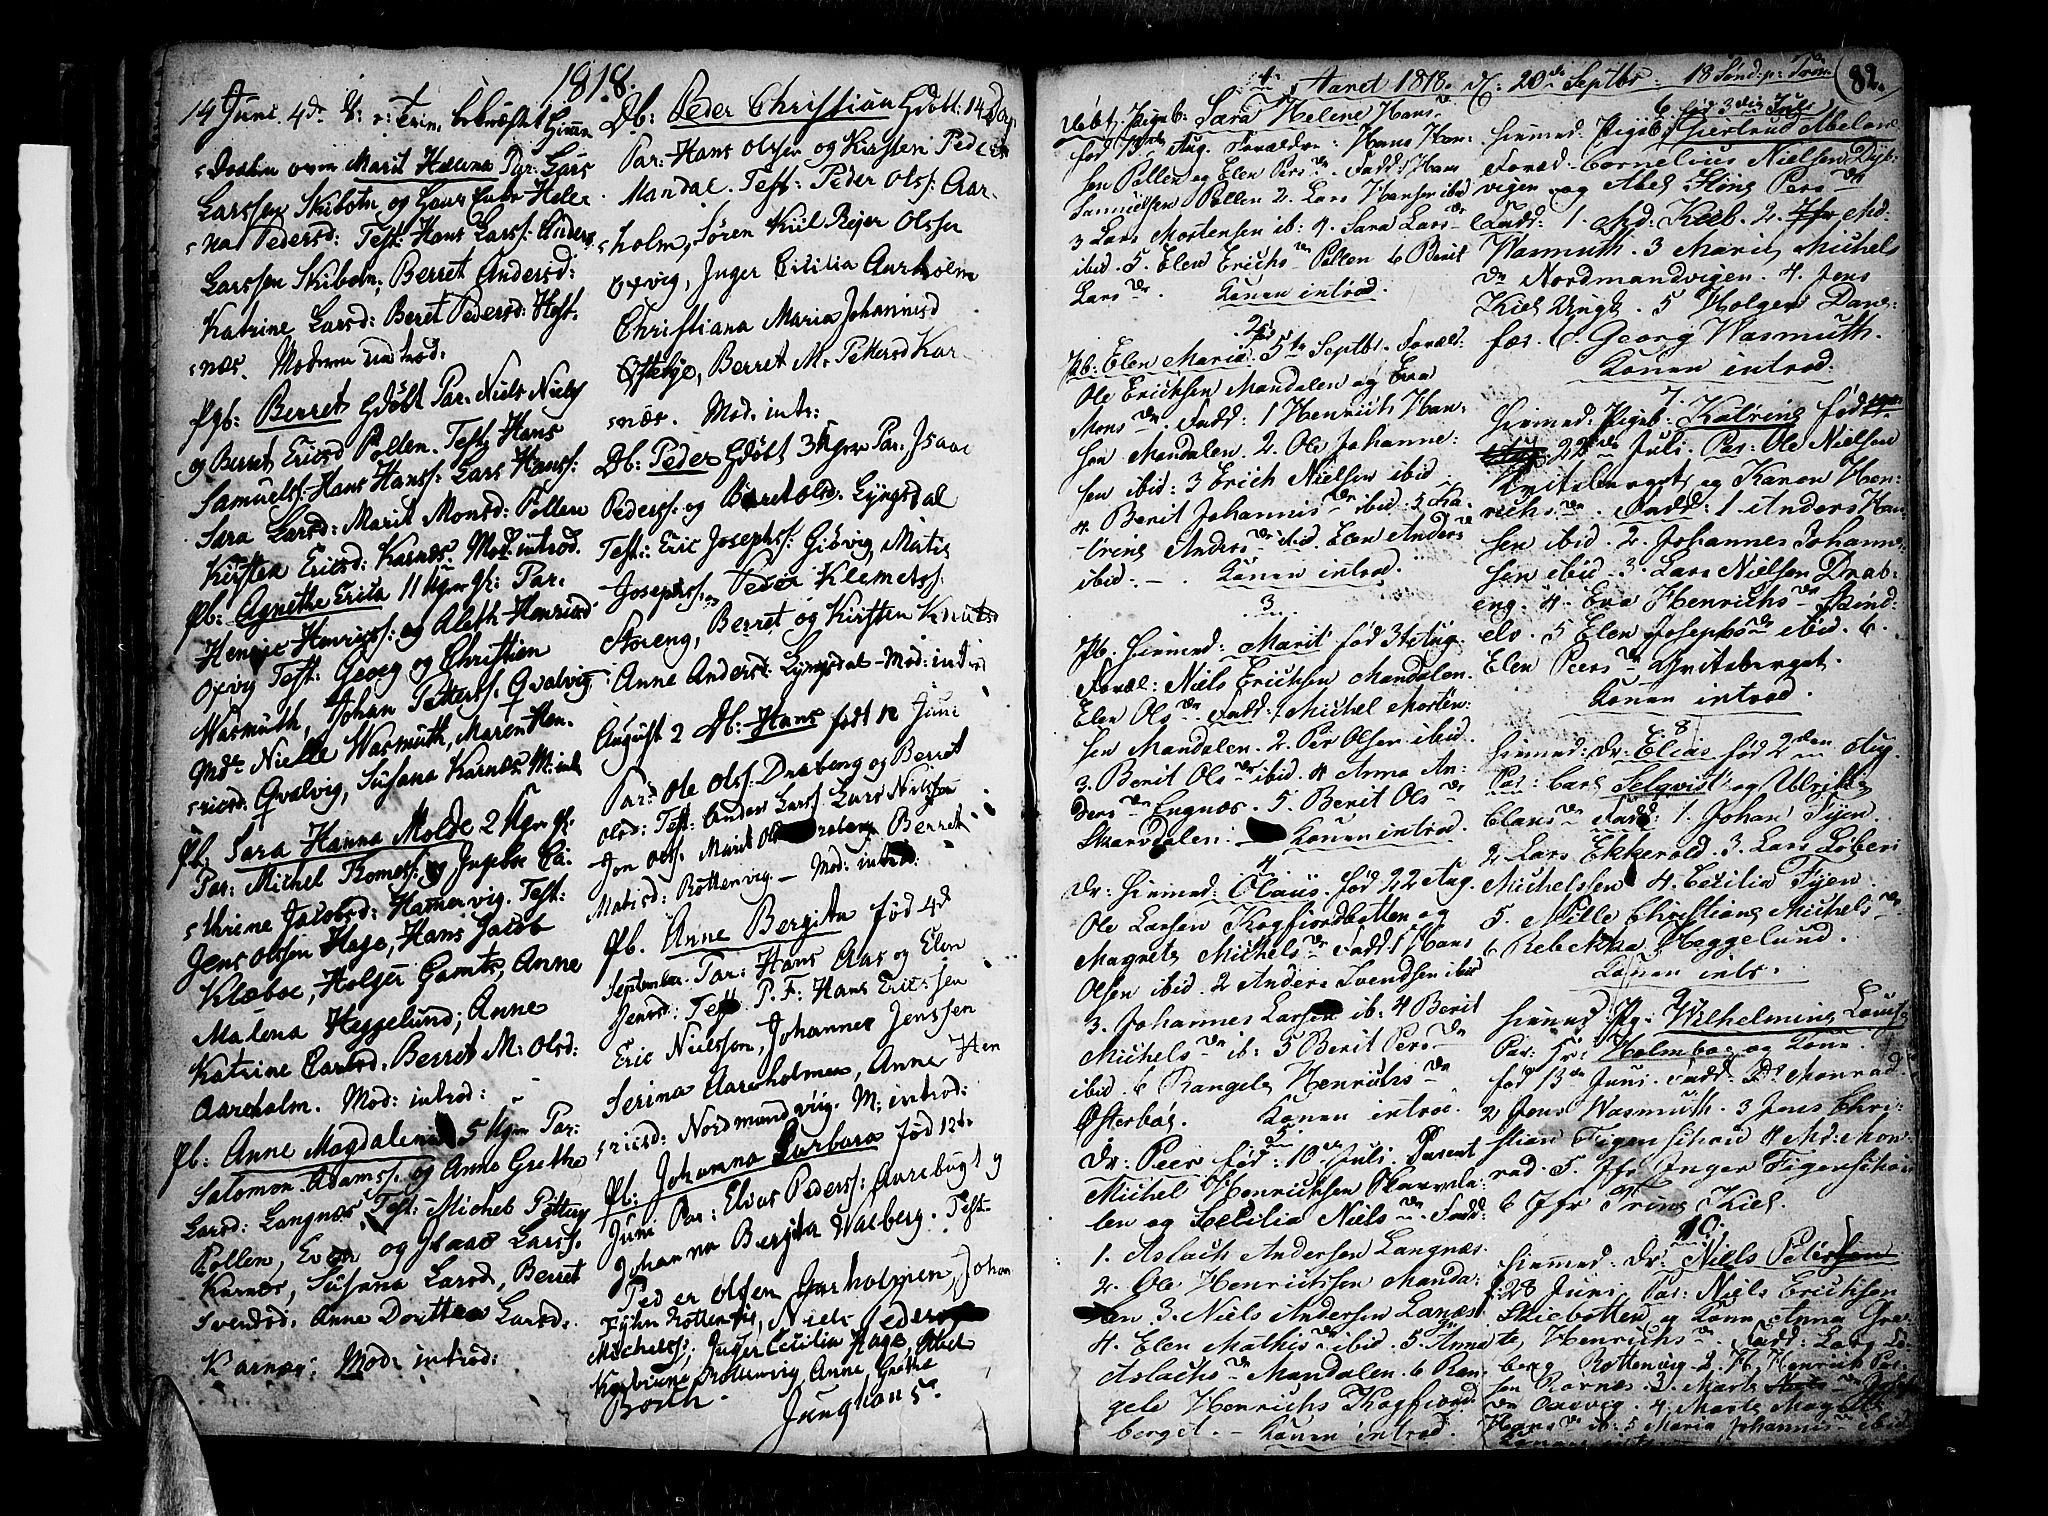 1818.
14 Juni 4de S: e: Trin. bekræftet Hiem
Daaben over Marit Helena Par: Lars
Larssen Skibotn og Hele
na Pedersd: Test: Hans Larss: Anders
Larssen Skibotn, Berret Andersd:
Katrine Larsd: Beret Pedersd: Hest-
næs. Moderen introd:
Pgb: Berret Hdöbt Par: Niels Niels
og Berret Ericsd Pollen. Test: Hans
Samuelss: Hans Hanss: Lars Hanss:
Sara Larsd: Marit Monsd: Pollen
Kirsten Ericsd: Karnæs. Mod: introd.
Pb: Agnethe Erica 11 Uger gl: Par.
Henric Henricss: og Aleth Henricsd
Oxvig Test: Georg og Christien
Wasmuth, Johan Peterss. Qvalvig
Mde Nielle Wasmuth, Maren Hen-
ricsd. Qvalvig, Susana Karnæs. M: int
Pb. Sara Hanna Molde 2 Uger gl.
Par: Michel Tomess: og Ingeboe Ca-
thrine Jacobsd: Hamervig. Test:
Jens Olssen Hage, Hans Jacob
Klæboe, Holger Gamts, Anne
Malena Heggelund; Anne
Katrine Carlsd. Berret M: Olsd:
Aareholm. Mod: introd:
Pb: Anne Magdalena 5 Uger Par:
Salomon Adamss. og Anne Grethe
Larsd: Langnæs Test: Michel
Pollen, Even og Isaac Larss.
Karnæs, Susana Larsd, Berret
Svendsd. Anne Dorthea Larsd.
Karnæs: Mod: introd:
Db: Peder Christian Hdöbt: 14 Dag
Par: Hans Olssen og Kirsten Peders
Mandal. Test: Peder Olss: Aar-
holm, Sören Kiil Rejer Olssen
Oxvig, Inger Cicilia Aarholm
Christiana Maria Johannesd
Berret M. Pettersd Kar-
næs. Mod: intr:
Db: Peder Hdöbt 3 Uger Par. Isaac
Pederss: og Berret Olsd. Lyngsdal
Test: Eric Josephss: Giövig, Matis
Josephss: Peder Klemetss.
Storeng, Berret og Kirsten Knutsd
Anne Andersd: Lyngsdal - Mod: introd
August 2 Db: Hans født 12 Juni
Par: Ole Olss: Drabeng og Berret
Olsd: Test: Anders Larss Lars Nilssen
Jon Olss. Marit Berret
Matisd: Rottenvig - Mod: introd:
Pb. Anne Bergita fød 4d
September. Par: Hans Aas og Elen
Jensd: Test. P. F: Hans Ericssen
Eric Nielssen, Johannes Jenssen
Serina Aareholmen, Anne Hen
ricsd: Nordmandvig. M; introd:
Pb: Johanna Barbara fød 12te
Juni Par: Elias Pederss: Aarebugt og
Johanna Bergita Walberg. Test.
Peder Olsen Aarholmen, Johan
Fyhn Rottenvig, Niels Peders
Michelss; Inger Cecilia Hage, Abel
Rottenvig, Anne Grethe
Both. Junghans.
Aaret 1818. d: 20de Septbr. 18 Sønd: p: Trin
82.
1.
Døbt, Pigeb: Sara Helene Hans
fød 13de Aug. Forældre: Hans Han-
sen Pollen og Elen Pers dr Fadd 1 Hans
Samuelsen Pollen 2. Lars Hansen ibid
3 Lars Mortensen ib: 4. Sara Lars dr
ibid. 5. Elen Erichs dr Pollen 6 Berit
Lars dr. Konen introd.
2.
Pb: Elen Maria fød 5te Septbr. Foræl:
Ole Ericksen Mandalen og Eva
Mons dr. Fadd: 1 Henrich Han-
sen Mandalen. 2. Ole Johanne-
sen ibid: 3 Erich Nielsen ibid
4. Berit Johannis dr ibid. 5. Ka-
trine Anders dr ibid. Elen Anders dr
ibid. - Konen introd.
3
Pb. hiemed: Marit fød 31 Aug.
Foræl: Niels Ericksen Mandalen.
Elen Ols dr Fadd: 1 Michel Morten-
sen Mandalen. 2. Per Olsen ibid.
3. Berit Ols dr ibid. 4 Anna An-
ders dr Engnæs. 5. Berit Ols dr
Skardalen: Konen introd.
4
Dr: hiemed: Olaus. fød 22 Aug.
Ole Larsen Kogfiordbotten og
Magrete Michels dr Fadd 1 Hans
Olsen ibid. 2 Anders Svendsen ibid
3. Johannes Larsen ib: 4 Berit
Michels dr ib: 5 Berit Pers dr
ibid. 6 Rangele Henrichs dr
Konen introd.
5.
Dr: Peer fød: 10de Juli. Parent
Michel Henricksen Skarda-
len og Cecilia Niels dr. Fadd:
1. Aslach Andersen Langnæs.
2. Ole Henrickssen Manda-
len 3. Niels Andersen Lanæs
4. Elen Mathis dr ibid. 5. Anna
Aslachs dr Mandalen. 6 Ran-
gele Henrichs dr Kogfiord
berget. - Konen introd.
6 fød 3die Juli
hiemed. Pigeb: Giertrud Abelone
Foræl. Cornelius Nielsen Dyb-
vigen og Abel Stine Pers dr
Fadd: 1. Md. Kieb. 2. Jfr Md.
Wasmuth. 3 Marit Michels
dr Nordmandvigen. 4. Jens
Kiel Ungk. 5 Holger Dane-
fær. 6. Georg Wasmuth.
Konen introd.
7.
hiemed: Pigeb: Katrine fød
22de Juli. Par: Ole Nielsen
Qvitebergets og Karen Hen-
richs dr. Fadd: 1. Anders Han-
sen ibid. 2. Johannes Johanne-
sen ibid. 3. Lars Nielsen Drab-
eng. 4. Eva Henrichs dr Skind-
elv. 5 Elen Josephs dr ibid. 6.
Elen Peers dr Qviteberget.
Konen introd.
8
hiemed: Dr: Elias fød 2den Aug.
Par: Carl Selqvist og Ulrikke
Claus dr. Fadd: 1. Johan Fyen.
2 Lars Ekkerold. 3. Lars Løber
Michelssen 4. Cecilia Fyen.
5. Mille Christiane Michels dr
6 Rebekka Heggelund.
Konen intr.
9
hiemed Pg: Wilhelmine Louise
Par: Hr: Holmboe og Kone.
fød 13de Juni. Fadd: Monrad
2 Jens Wasmuth. 3 Jens Chri-
stian Figenschou 4 Md: Mon-
rad. 5. Jfr Inger Figenschou
6 Jfr Trine Kiel.
10.
hiemed: Dr: Niels Petersen
f: 28 Juni, Par: Niels Ericksen
Skiebotten og Kone Anna Gre-
te Henrichs dr Fadd:
berg Rottenvig 2. H. Henrick Pe-
sen Rornæs. 3. Marte
dr Oxevig. 4. Marte
Hans dr ib: 5 Maria Johannis dr ibid